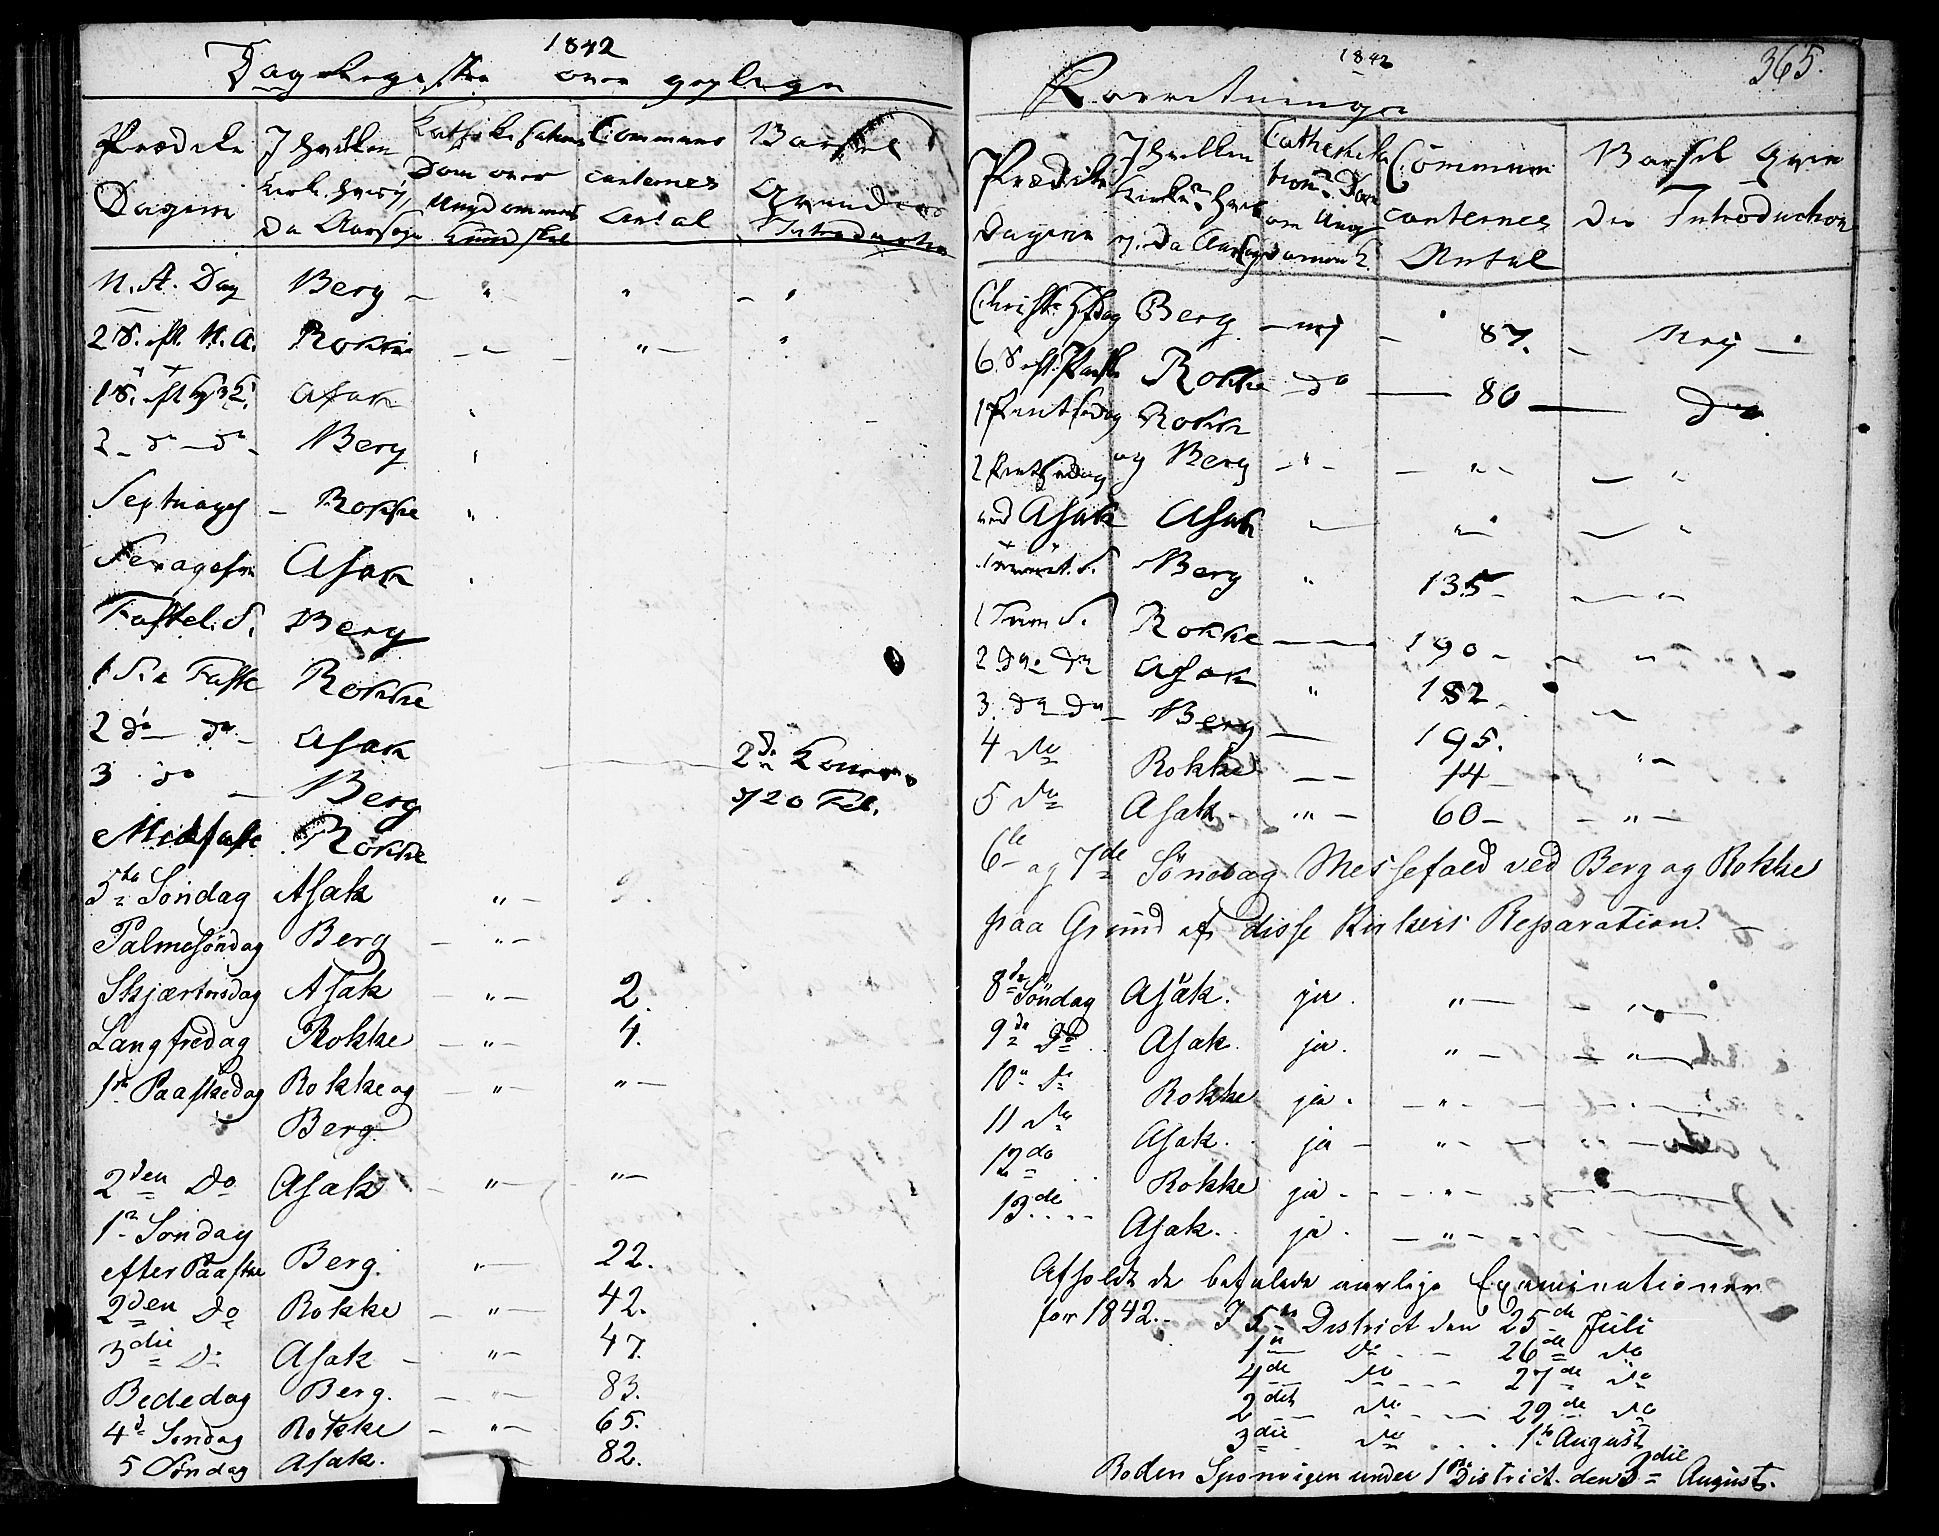 1842
Dag Register over geistlige
Prædike Dagene
I hvilken Kirke
Dom over Ungdommens Kundskab
Communicanternes Antal
Barsel Qvinders Introduction
N. A. Dag Berg
2 S. eft. N. A. Rokke
1 S. eft H 3 K. Asak
2 do do Berg
Septuages Rokke
Sexagesim Asak
Fastel. S. Berg
1 S. i Faste Rokke
2 do do Asak
3 do Berg
Midfaste Rokke
20 Feb.
5te Søndag Asak " 
Palmesøndag Berg "
Skjærtorsdag Asak " 2.
Langfredag Rokke " 4.
1ste Paaskedag Rokke og " "
Berg
2den Do Asak " "
1ste Søndag
efter Paaske Berg. " 22.
2den Do Rokke " 42.
3die Do Asak " 47.
Bededag Berg. " 83.
4de Søndag Rokke " 65.
5 Søndag Asak. 82.
1842
365.
Forretninger
Prædike Dagene
I hvilken Kirke
Communicanternes Antal
Barsel Qvinder Introduction
Christi Hfdag Berg nej 87. Nej
6 S. eft. Paaske Rokke do 80 do
1 Pintsedag Rokke
2 Pintsedag og Berg " " "
ved Asak Asak " " "
Berg " 135 "
1 Trin S. Rokke 190 "
2 do do Asak " 182
3. do do Berg 195.
4 do Rokke 14 "
5 do Asak " 60 "
6te og 7de Søndag Messefald ved Berg og Rokke
paa Grund af disse Kirkers Reparation.
8de Søndag Asak. ja. " "
9de Do Asak. ja. " "
10de do Rokke ja. " "
11 do Asak. ja " "
12do Rokke ja "
13de Asak. ja. "
Afholdt de befalede aarlige Examinationer
for 1842. I 5te District den 25de Juli
1ste do 26de do
4de do 27de do
2det do 29de do
3die do 1ste August
Roden Sponvigen under 1ste District den 3die August.